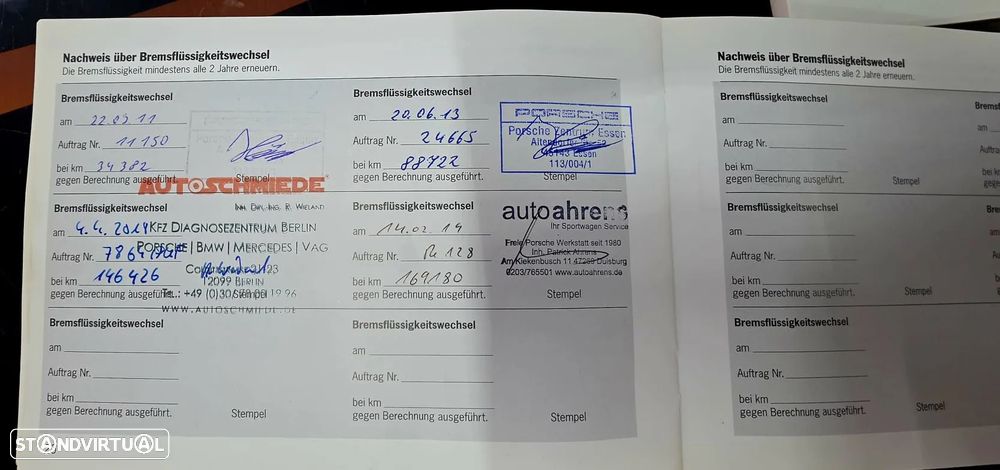 Nachweis über Bremsflüssigkeitswechsel
Die Bremsflüssigkeit mindestens alle 2 Jahre erneuern.
Bremsflüssigkeitswechsel
am 22.03.11
Auftrag Nr. 11150
bei km 34382
gegen Berechnung ausgeführt. Stempel
Bremsflüssigkeitswechsel
am 20.06.13
Auftrag Nr. 24665
bei km 88722
gegen Berechnung ausgeführt. Stempel
PORSCHE
Porsche Zentrum Essen
45143 Essen
113/004/1
AUTOSCHMIEDE
Inh. Dipl.-Ing. R. Wieland
Kfz Diagnosezentrum Berlin
Porsche | BMW | Mercedes | VAG
12099 Berlin
www.autoschmiede.de
Bremsflüssigkeitswechsel
am 4.4.2014
Auftrag Nr.
bei km 146426
gegen Berechnung ausgeführt. Stempel
Bremsflüssigkeitswechsel
am 14.02.19
Auftrag Nr. R 128
bei km 169180
gegen Berechnung ausgeführt. Stempel
autoahrens
Ihr Sportwagen Service
Freie Porsche Werkstatt seit 1980
Inh. Patrick Ahrens
Am Kiekenbusch 11 47269 Duisburg
0203/765501 www.autoahrens.de
Bremsflüssigkeitswechsel
am
Auftrag Nr.
bei km
gegen Berechnung ausgeführt. Stempel
Bremsflüssigkeitswechsel
am
Auftrag Nr.
bei km
gegen Berechnung ausgeführt. Stempel
Nachweis über Bremsflüssigkeitswechsel
Die Bremsflüssigkeit mindestens alle 2 Jahre erneuern.
Bremsflüssigkeitswechsel
am
Auftrag Nr.
bei km
gegen Berechnung ausgeführt. Stempel
Bremsflüssigkeitswechsel
am
Auftrag Nr.
bei km
gegen Berechnung ausgeführt. Stempel
Bremsflüssigkeitswechsel
am
Auftrag Nr.
bei km
gegen Berechnung ausgeführt. Stempel
STANDVIRTUAL